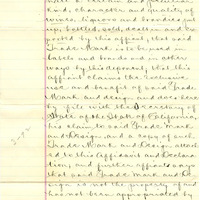 kind, character and quality of
wines, liquors and brandies put
up, bottled, sold, dealt in and ex-
ported by this affiant, that said
Trade Mark is to be used in
labels and brands and in other
ways by this deponent, that this
affiant claims the exclusive
use and benefit of said Trade
Mark and design and
by file with the Secretary of
State of the State of California,
his claim to said Trade Mark
and Design, and a copy of said
Trade Mark and Design attach-
ed to this affidavit and Declara-
tion, and further affiant says
that said Trade Mark and De-
sign is not the property of and
has not been appropriated by